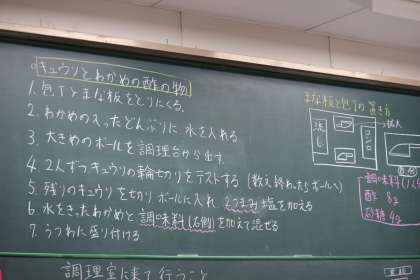 ○キュウリとわかめの酢の物
1. 包丁とまな板をとりにくる。
2. わかめの入ったどんぶりに 水を入れる
3. 大きめのボールを調理台から出す。
4. 2人ずつキュウリの輪切りをテストする (数え終わったらボールへ)
5. 残りのキュウリを切りボールに入れ、2つまみ塩を加える
6. 水をきったわかめと調味料(右側)を加えて混ぜる
7. うつわに盛り付ける
まな板と包丁の置き方
流し
コンロ
拡大
調味料(1人分)
酢 8g
砂糖 4g
調理室に来て行うこと